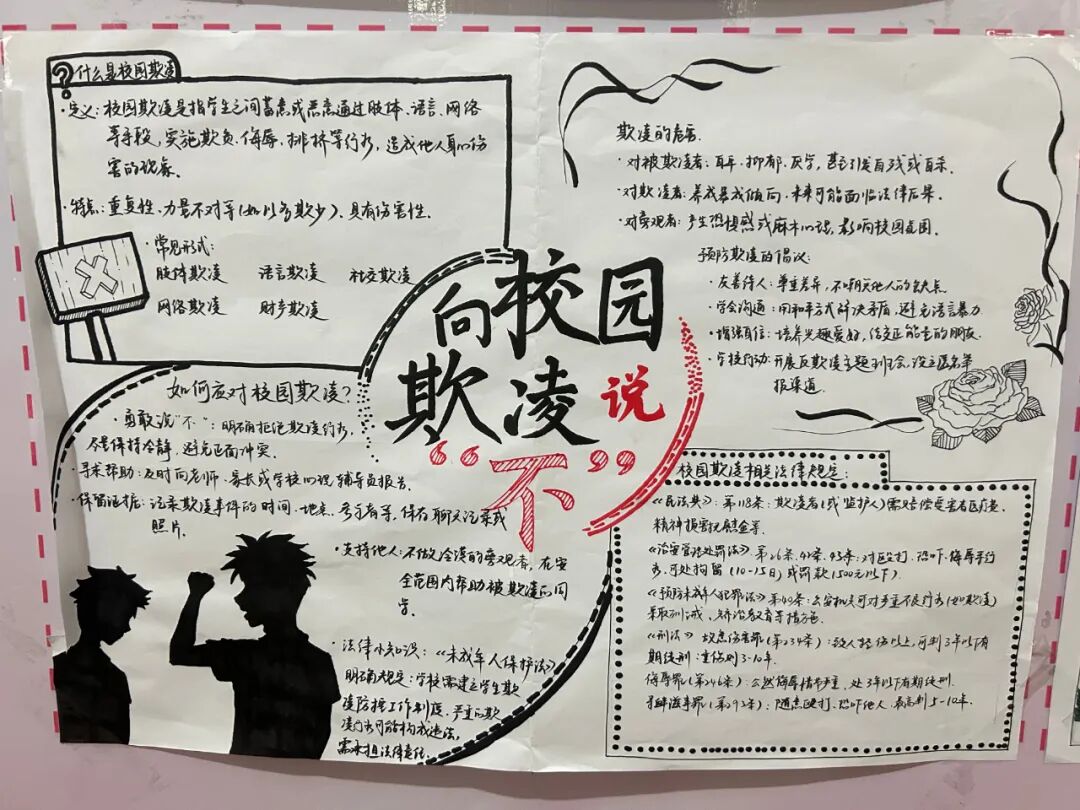 什么是校园欺凌
·定义:校园欺凌是指学生之间蓄意或恶意通过肢体、语言、网络
等手段,实施欺负、侮辱、排挤等行为,造成他人身心伤
害的现象。
·特点:重复性、力量不对等(如以多欺少)、具有伤害性。
·常见形式:
肢体欺凌 语言欺凌 社交欺凌
网络欺凌 财产欺凌
向校园
欺凌说
“不”
如何应对校园欺凌?
·勇敢说“不”:明确拒绝欺凌行为,
尽量保持冷静,避免正面冲突。
·寻求帮助:及时向老师、家长或学校心理辅导员报告。
·保留证据:记录欺凌事件的时间、地点、参与者等,保存聊天记录或
照片。
·支持他人:不做冷漠的旁观者,在安
全范围内帮助被欺凌的同
学。
·法律小知识:《未成年人保护法》
明确规定:学校需建立学生欺
凌防控工作制度,严重的欺
凌行为可能构成违法,
需承担法律责任。
欺凌的危害
·对被欺凌者:自卑、抑郁、厌学,甚至引发自残或自杀。
·对欺凌者:养成暴戾倾向,未来可能面临法律后果。
·对旁观者:产生恐惧感或麻木心理,影响校园氛围。
预防欺凌的倡议:
·友善待人:尊重差异,不嘲笑他人的缺点。
·学会沟通:用和平方式解决矛盾,避免语言暴力
·增强自信:培养兴趣爱好,结交正能量的朋友。
·学校行动:开展反欺凌主题班会,设立匿名举
报渠道
校园欺凌相关法律规定:
《民法典》:第118条:欺凌者(或监护人)需赔偿受害者医疗费、
精神损害抚慰金等
《治安管理处罚法》第26条、42条、43条:对殴打、恐吓、侮辱等行
为,可处拘留(10-15日)或罚款1500元以下).
《预防未成年人犯罪法》第40条:公安机关可对严重不良行为(如欺凌)
采取训诫、矫治教育等措施.
《刑法》故意伤害罪(第234条):致人轻伤以上,可判3年以下有
期徒刑;重伤则3-10年.
侮辱罪(第246条):公然侮辱情节严重,处3年以下有期徒刑.
寻衅滋事罪(第293条):随意殴打、恐吓他人,最高判5-10年.